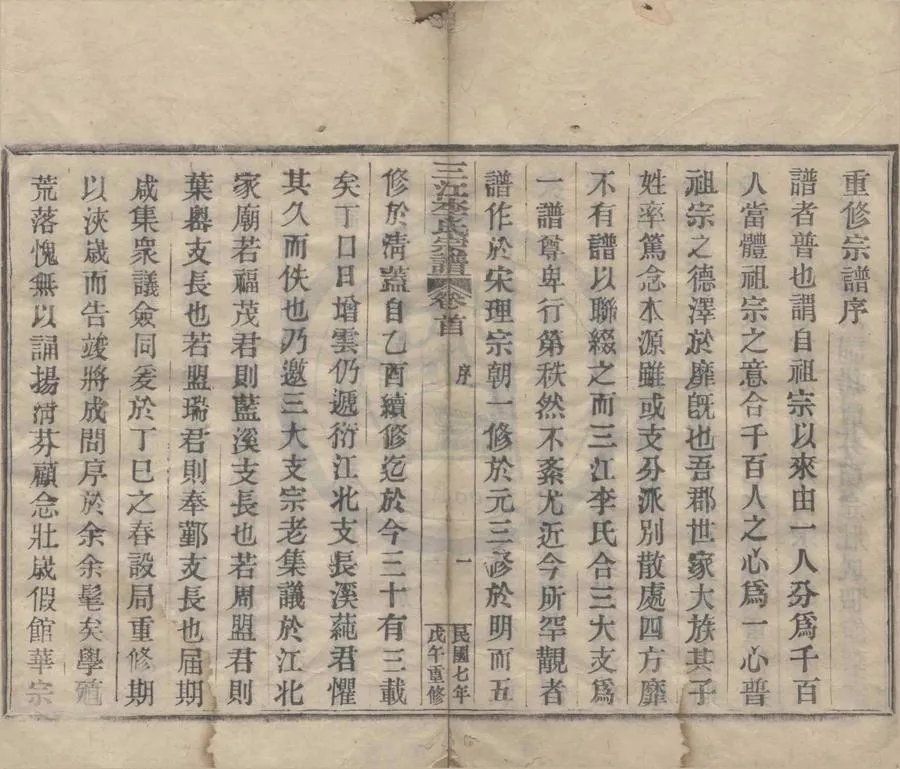 重修宗譜序
譜者普也謂自祖宗以來由一人分為千百
人當體祖宗之意合千百人之心為一心普
祖宗之德澤於靡旣也吾郡世家大族其子
姓率篤念本源雖或支分派別散處四方靡
不有譜以聯綴之而三江李氏合三大支為
一譜尊卑行第秩然不紊尤近今所罕觀者
譜作於宋理宗朝一修於元三修於明而五
三江李氏宗譜 卷首 序 一 民國七年戊午重修
修於淸蓋自乙酉續修迄於今三十有三載
矣丁口日增雲仍遞衍江北支長溪蒓君懼
其久而佚也乃邀三大支宗老集議於江北
家廟若福茂君則藍溪支長也若周盟君則
葉嶴支長也若盟瑞君則奉鄞支長也屆期
咸集衆議僉同爰於丁巳之春設局重修期
以浹歲而告竣將成問序於余余髦矣學殖
荒落愧無以誦揚淸芬顧念壯歲假館華宗